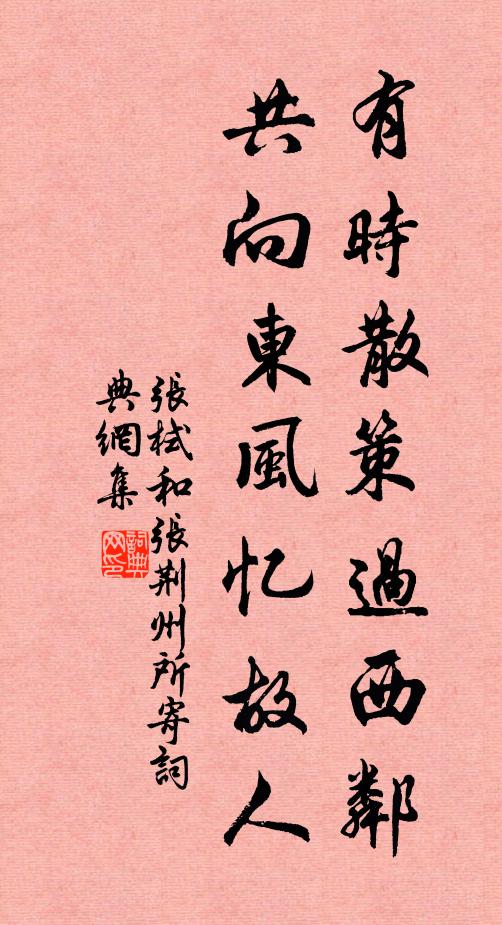 有時散策過西鄰
共向東風忆故人
張栻和張荆州所寄詞
典網集
詞典
网印